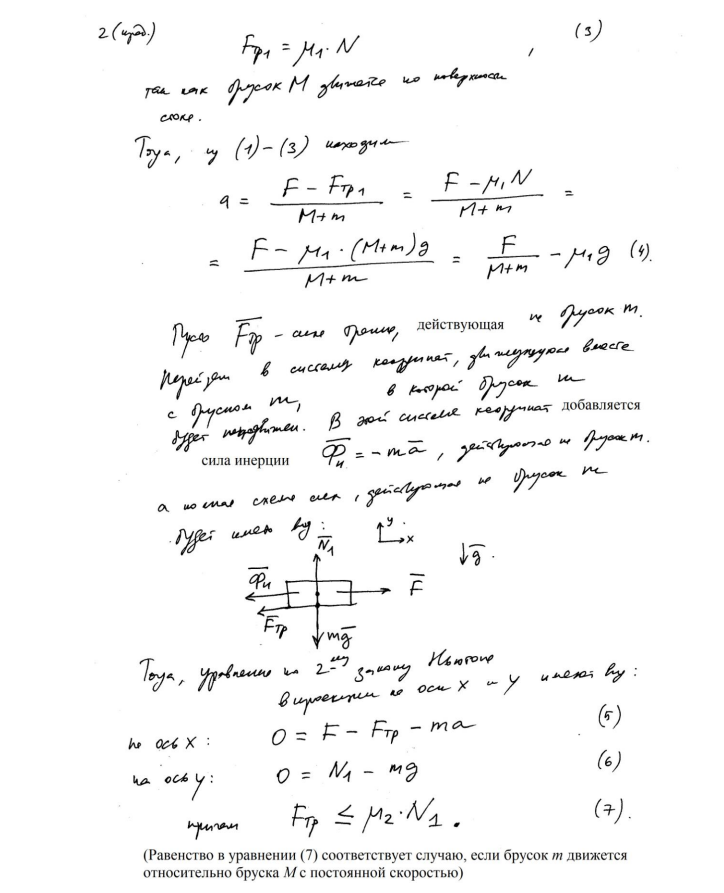 2 (прод.)
F_тр1 = μ1 · N , (3)
так как брусок M движется по поверхности
стола.
Тогда, из (1)–(3) находим
a = (F − F_тр1)/(M+m) = (F − μ1N)/(M+m) =
= (F − μ1 · (M+m)g)/(M+m) = F/(M+m) − μ1g (4).
Пусть F̅_тр – сила трения, действующая на брусок m.
Перейдем в систему координат, движущуюся вместе
с бруском m, в которой брусок m
будет неподвижен. В этой системе координат добавляется
сила инерции Φ̅_и = −m a̅, действующая на брусок m.
а полная схема сил, действующая на брусок m
будет иметь вид:
N̅1 y x ↓g̅.
Φ̅_и F̅
F̅_тр
mg̅
Тогда, уравнения по 2-му закону Ньютона
в проекции на оси x и y имеют вид:
на ось x: 0 = F − F_тр − ma (5)
на ось y: 0 = N1 − mg (6)
причем F_тр ≤ μ2 · N1. (7).
(Равенство в уравнении (7) соответствует случаю, если брусок m движется
относительно бруска M с постоянной скоростью)